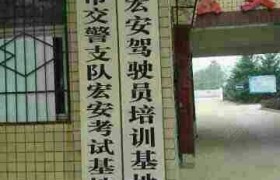 宏安驾驶员培训基地
市交警支队宏安考试基地